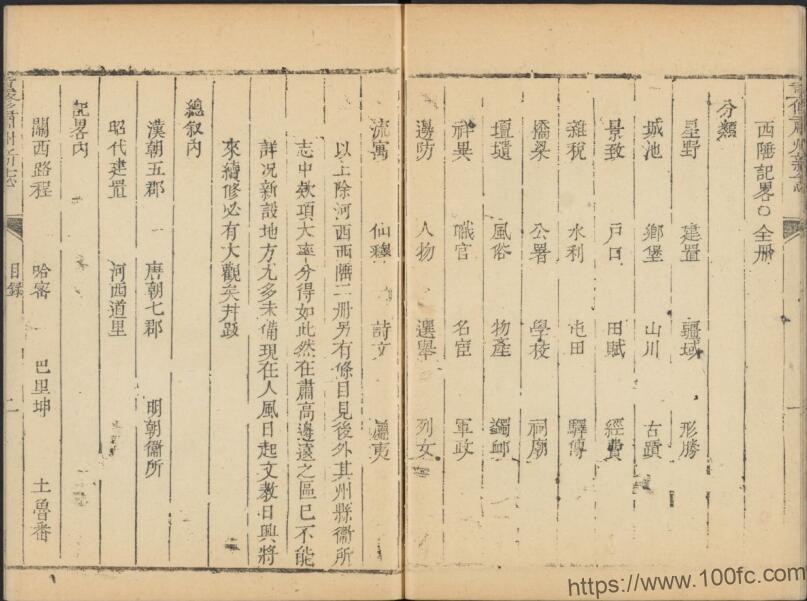 西陲記畧○全册
分類
星野 建置 疆域 形勝
城池 鄉堡 山川 古蹟
景致 戶口 田賦 經費
雜稅 水利 屯田 驛傳
橋梁 公署 學校 祠廟
壇壝 風俗 物產 蠲卹
祥異 職官 名宦 軍政
邊防 人物 選舉 列女
流寓 仙釋 詩文 屬夷
以上除河西西陲二册另有條目見後外其州縣衞所
志中欸項大率分得如此然在肅高邊遠之區已不能
詳况新設地方尤多未備現在人風日起文教日興將
來續修必有大觀矣并跋
總叙內
漢朝五郡 唐朝七郡 明朝衞所
昭代建置 河西道里
記畧內
關西路程 哈密 巴里坤 土魯番
目錄 二
https://www.100fc.com